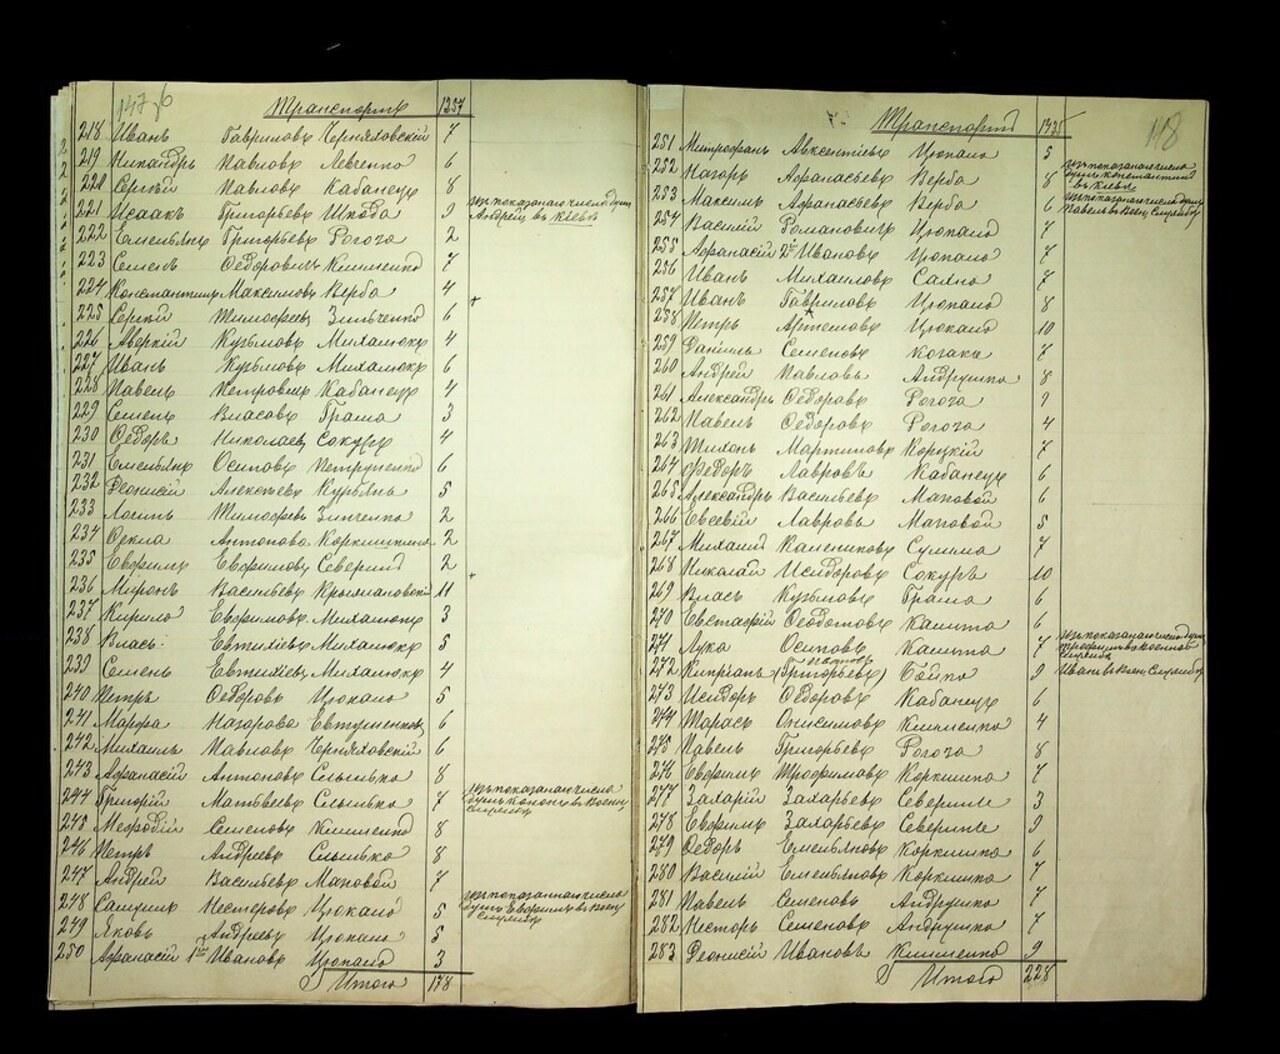 147 об
Транспортъ 1257
218 Иванъ Гавриловъ Черняховскій 7
219 Никандръ Павловъ Левченко 6
220 Сергѣй Павловъ Кабанецъ 8
221 Исаакъ Григорьевъ Шкода 9 изъ показанаго числа душъ
Андрей въ Кіевѣ
222 Емельянъ Григорьевъ Рогоза 2
223 Семенъ Федоровичъ Клименко 7
224 Константинъ Максимовъ Верба 4
225 Сергѣй Тимофеевъ Зинченко 6
226 Аверкій Кузьмовъ Михалюкъ 4
227 Иванъ Кузьмовъ Михалюкъ 6
228 Павелъ Петровичъ Кабанецъ 4
229 Семенъ Власовъ Грама 3
230 Федоръ Николаевъ Сокуръ 4
231 Емельянъ Осиповъ Петрупенко 6
232 Деонисій Алексѣевъ Курьянъ 5
233 Логинъ Тимофеевъ Зинченко 2
234 Фекла Антонова Коркишкина 2
235 Евфимъ Евфимовъ Северинъ 2
236 Миронъ Васильевъ Крыжановскій 11
237 Кирило Евфимовъ Михалюкъ 3
238 Власъ Евтихіевъ Михалюкъ 5
239 Семенъ Евтихіевъ Михалюкъ 4
240 Петръ Федоровъ Цюкало 5
241 Марфа Назарова Евтушенковъ 6
242 Михаилъ Павловъ Черняховскій 6
243 Афанасій Антоновъ Слынько 8
244 Григорій Матвѣевъ Слынько 7 изъ показанаго числа
душъ Кононъ въ Военн
службѣ
245 Мефодій Семеновъ Клименко 8
246 Петръ Андреевъ Слынько 8
247 Андрей Васильевъ Маковой 7
248 Самуилъ Нестеровъ Цюкало 5 изъ показаннаго числа
душъ Евфимъ въ Воен
службѣ
249 Яковъ Андреевъ Цюкало 5
250 Афанасій 1й Ивановъ Цюкало 3
Итого 178
118
Транспортъ 1435
251 Митрофанъ Авксентіевъ Цюкало 5
252 Назаръ Афанасьевъ Верба 8 изъ показанаго числа
душъ Константинъ
въ Кіевѣ
253 Максимъ Афанасьевъ Верба 6 изъ показанаго числа душъ
Павелъ въ Воен службѣ
254 Василій Романовичъ Цюкало 7
255 Афанасій 2й Ивановъ Цюкало 7
256 Иванъ Михаиловъ Сахно 7
257 Иванъ Гавриловъ Цюкало 8
258 Петръ Артемовъ Цюкало 10
259 Даніилъ Семеновъ Козакъ 7
260 Андрей Павловъ Андрушко 8
261 Александръ Федоровъ Рогоза 9
262 Павелъ Федоровъ Рогоза 4
263 Тихонъ Мартиновъ Корицкій 7
264 Федоръ Лавровъ Кабанецъ 6
265 Александръ Васильевъ Маковой 6
266 Евсевій Лавровъ Маковой 5
267 Михаилъ Калениковъ Сулима 7
268 Николай Исидоровъ Сокуръ 10
269 Власъ Кузьмовъ Грама 6
270 Евстафій Феодотовъ Калита 6
271 Лука Осиповъ Калита 7 изъ показанаго числа душъ
Трофимъ въ военной
службѣ
272 Кипріанъ (Григорьевъ) Бойко 9 Иванъ въ Воен службѣ
273 Исидоръ Федоровъ Кабанецъ 6
274 Тарасъ Онисимовъ Клименко 4
275 Павелъ Григорьевъ Рогоза 8
276 Евфимъ Трофимовъ Коркишко 7
277 Захарій Захарьевъ Северинъ 3
278 Евфимъ Захарьевъ Северинъ 9
279 Федоръ Емельяновъ Коркишко 6
280 Василій Емельяновъ Коркишко 7
281 Павелъ Семеновъ Андрушко 7
282 Несторъ Семеновъ Андрушко 7
283 Деонисій Ивановъ Клименко 9
Итого 228